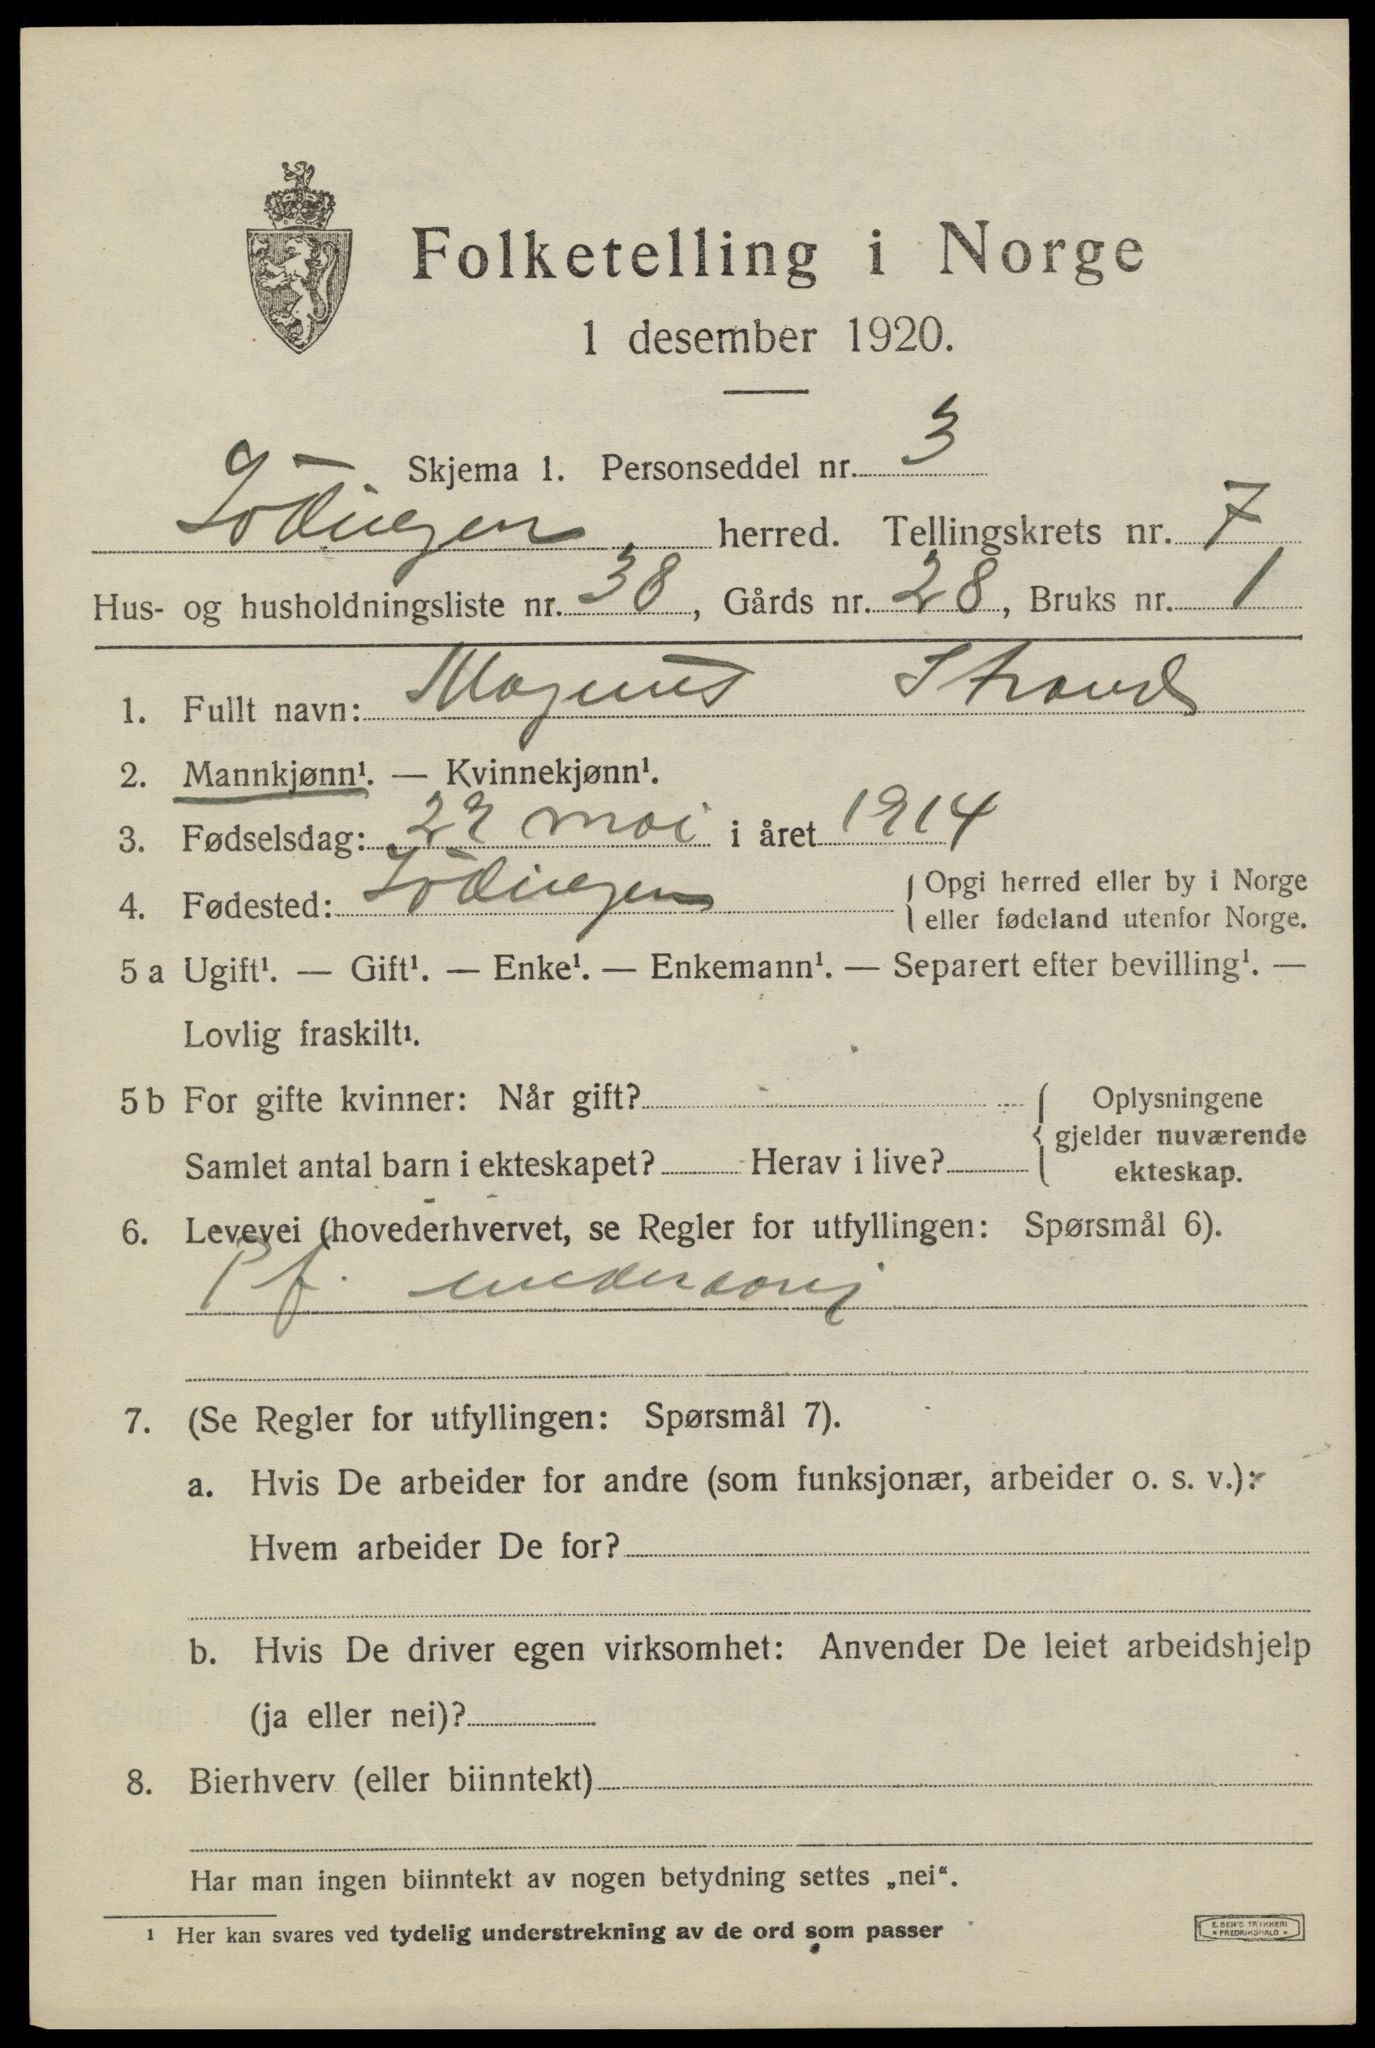 Folketelling i Norge
1 desember 1920.
Skjema 1. Personseddel nr. 3
Lödingen herred. Tellingskrets nr. 7
Hus- og husholdningsliste nr. 38, Gårds nr. 28, Bruks nr. 1
1. Fullt navn: Magnus Strand
2. Mannkjønn¹. — Kvinnekjønn¹.
3. Fødselsdag: 29 mai i året 1914
4. Fødested: Lödingen
{ Opgi herred eller by i Norge
eller fødeland utenfor Norge.
5 a Ugift¹. — Gift¹. — Enke¹. — Enkemann¹. — Separert efter bevilling¹. —
Lovlig fraskilt¹.
5 b For gifte kvinner: Når gift?
Samlet antal barn i ekteskapet? Herav i live?
{ Oplysningene
gjelder nuværende
ekteskap.
6. Levevei (hovederhvervet, se Regler for utfyllingen: Spørsmål 6).
Pf.
7. (Se Regler for utfyllingen: Spørsmål 7).
a. Hvis De arbeider for andre (som funksjonær, arbeider o. s. v.):
Hvem arbeider De for?
b. Hvis De driver egen virksomhet: Anvender De leiet arbeidshjelp
(ja eller nei)?
8. Bierhverv (eller biinntekt)
Har man ingen biinntekt av nogen betydning settes „nei“.
¹ Her kan svares ved tydelig understrekning av de ord som passer
E. SEM'S TRYKKERI
* FREDRIKSHALD *